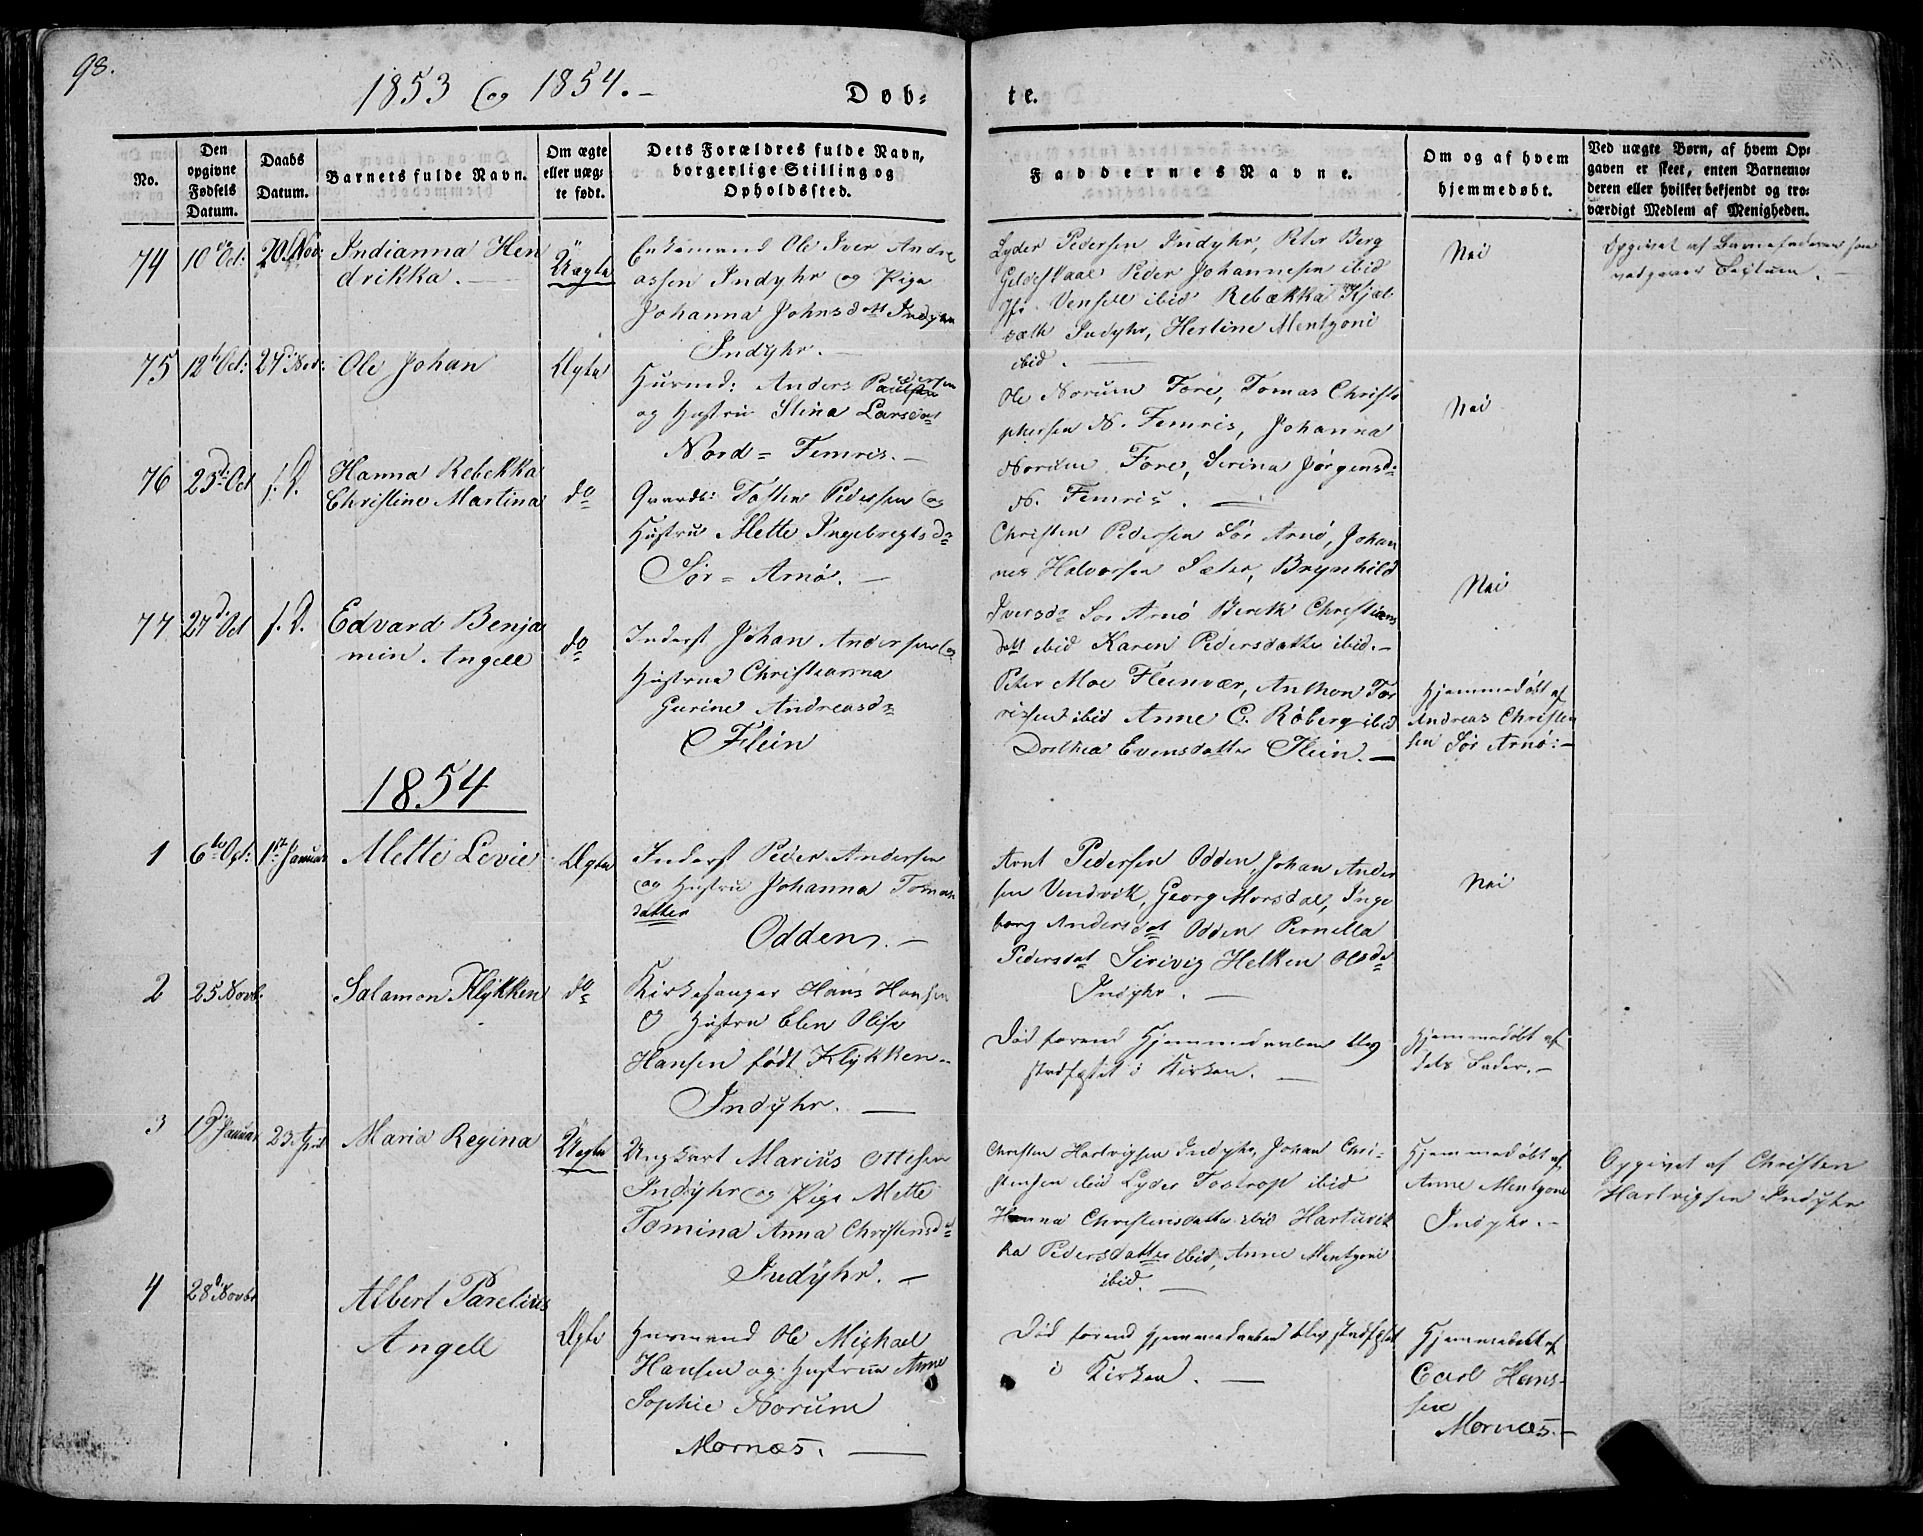 98.
1853 og 1854.-
Døb-
te.
No.
Den opgivne Fødsels Datum.
Daabs Datum.
Barnets fulde Navn.
Om ægte eller uægte født.
Dets Forældres fulde Navn, borgerlige Stilling og Opholdssted.
Faddernes Navne.
Om og af hvem hjemmedøbt.
Ved uægte Børn, af hvem Opgaven er skeet, enten Barnemoderen eller hvilket bekjendt og troværdigt Medlem af Menigheden.
74
10de Oct:
20. Nov:
Indianna Hen
drikka.
Uægte
Enkemand Ole Iver Andre
assen Indyhr og Pige
Johanna Johnsdatt Indyhr
Indyhr.
Lyder Pedersen Indyhr, Peter Berg
Gildeskaal Peder Johannesen ibid
Rebækka Kjæl
Indyhr, Hertine Mentzoni
ibid.
Nei
Opgivet af Barnefaderen som
vedgaaer
75
12te Oct:
27de Nov:
Ole Johan
Ægte
Huusmd: Anders Pedersen
og Hustru Stina Larsdat
Nord = Femris.-
Ole Norum Fore, Tomas Christo
phersen N. Femris, Johanna
Norum Fore, Serina Jørgensd:
N. Femris.
Nei
76
23de Oct
s. D.
Hanna Rebekka
Christine Martina
do
Gaardb: Tosten Pedersen og
Hustru Mette Ingebregtsdr
Sør = Arnø.-
Christen Pedersen Sør Arnø, Johan
nes Halvorsen Sæter, Brynhild
Iversdr Sør Arnø Bereth Christians
datt ibid Karen Pedersdatter ibid.-
Nei
77
27de Oct
s. D.
Edvard Benja
min. Angell
do
Inderst Johan Andersen og
Hustrue Christianna
Gurine Andreasdr
Flein
Peter Moe Fleinvær, Anthon Tor
rissen ibid Anne C. Røberg ibid
Dorthea Evensdatter Flein.-
Hjemmedøbt af
Andreas Christen
sen Sør Arnø:-
1854
1
6te Oct:
1ste Januar
Mette Levie
Ægte
Inderst Peder Andersen
og Hustru Johanna Tomas
datter
Odden.-
Arnt Pedersen Odden, Johan Ander
sen Vindvik, Georg Morsdal, Inge
borg Andersdat Odden Pernella
Pedersdat Helken Olsdr
Indyhr.
Nei
2
25 Novb.
Salamon Klykken
do
Kirkesanger Hans Hansen
& Hustru Elen Olise
Hansen født Klykken-
Indyhr.
Død førend Hjemmedaaben blev
stadfæstet i Kirken.
Hjemmedøbt af
dets Fader.-
3
19de Januar
23. April
Maria Regina
Uægte
Ungkarl Marius Ottesen
Indyhr og Pige Mette
Tomina Anna Christensdr
Indyhr.-
Christen Hartvigsen Indyhr, Johan Chri-
stensen ibid Lyder Tostrop ibid
Hanna Christensdatter ibid Hartvik
ka Pedersdatter ibid, Anne Mentzoni
ibid.
Hjemmedøbt af
Anne Mentzoni
Indyhr.-
Opgivet af Christen
Hartvigsen Indyhr
4
28de Novbr
Albert Parelius
Angell
Ægte
Huusmand Ole Michael
Hansen og Hustrue Anne
Sophie Norum
Mornæs.
Død førend Hjemmedaaben blev stadfæstet
i Kirken.
Hjemmedøbt af
Carl Hans-
sen
Mornæs.-